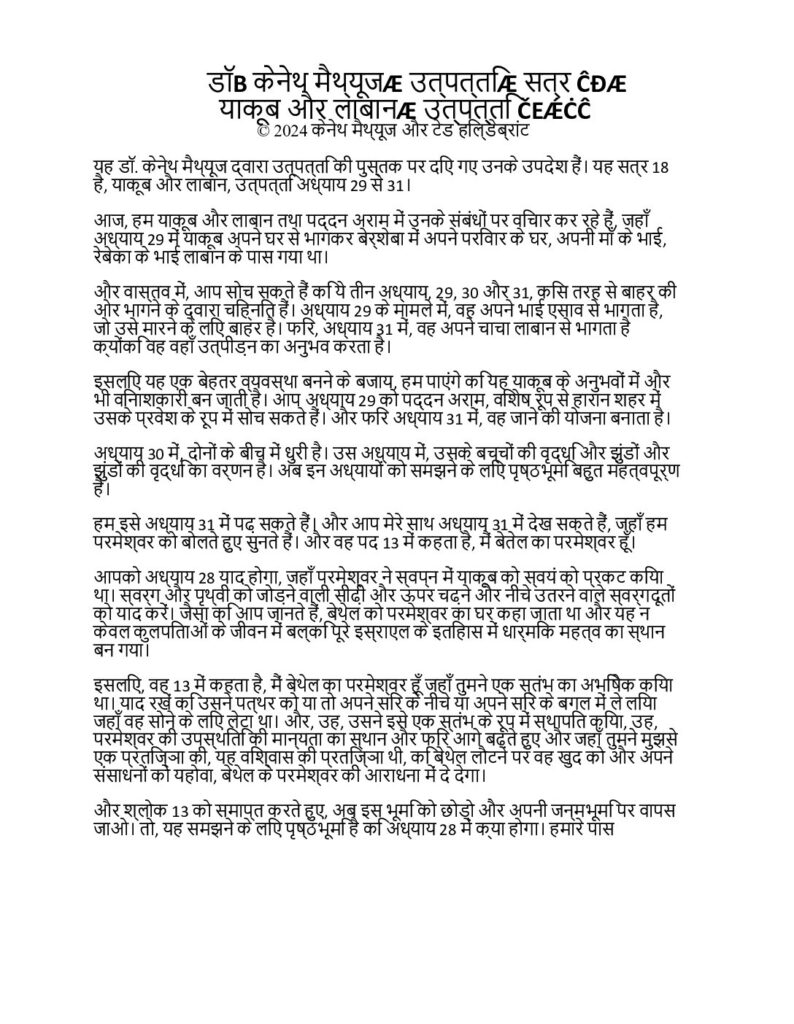 डॉB केनेथ मैथ्यूजÆ उत्पत्तिÆ सत्र ĈÐÆ
याकूब और लाबानÆ उत्पत्ति ČEÆĊĈ
© 2024 केनेथ मैथ्यूज और टेड हिल्डेब्रांट
यह डॉ. केनेथ मैथ्यूज द्वारा उत्पत्ति की पुस्तक पर दिए गए उनके उपदेश हैं। यह सत्र 18
है, याकूब और लाबान, उत्पत्ति अध्याय 29 से 31।
आज, हम याकूब और लाबान तथा पद्दन अराम में उनके संबंधों पर विचार कर रहे हैं, जहाँ
अध्याय 29 में याकूब अपने घर से भागकर बेर्शेबा में अपने परिवार के घर, अपनी माँ के भाई,
रेबेका के भाई लाबान के पास गया था।
और वास्तव में, आप सोच सकते हैं कि ये तीन अध्याय, 29, 30 और 31, किस तरह से बाहर की
ओर भागने के द्वारा चिह्नित हैं। अध्याय 29 के मामले में, वह अपने भाई एसाव से भागता है,
जो उसे मारने के लिए बाहर है। फिर, अध्याय 31 में, वह अपने चाचा लाबान से भागता है
क्योंकि वह वहाँ उत्पीड़न का अनुभव करता है।
इसलिए यह एक बेहतर व्यवस्था बनने के बजाय, हम पाएंगे कि यह याकूब के अनुभवों में और
भी विनाशकारी बन जाती है। आप अध्याय 29 को पद्दन अराम, विशेष रूप से हारान शहर में
उसके प्रवेश के रूप में सोच सकते हैं। और फिर अध्याय 31 में, वह जाने की योजना बनाता है।
अध्याय 30 में, दोनों के बीच में धुरी है। उस अध्याय में, उसके बच्चों की वृद्धि और झुंडों और
झुंडों की वृद्धि का वर्णन है। अब इन अध्यायों को समझने के लिए पृष्ठभूमि बहुत महत्वपूर्ण
है।
हम इसे अध्याय 31 में पढ़ सकते हैं। और आप मेरे साथ अध्याय 31 में देख सकते हैं, जहाँ हम
परमेश्वर को बोलते हुए सुनते हैं। और वह पद 13 में कहता है, मैं बेतेल का परमेश्वर हूँ।
आपको अध्याय 28 याद होगा, जहाँ परमेश्वर ने स्वप्न में याकूब को स्वयं को प्रकट किया
था। स्वर्ग और पृथ्वी को जोड़ने वाली सीढ़ी और ऊपर चढ़ने और नीचे उतरने वाले स्वर्गदूतों
को याद करें। जैसा कि आप जानते हैं, बेथेल को परमेश्वर का घर कहा जाता था और यह न
केवल कुलपिताओं के जीवन में बल्कि पूरे इस्राएल के इतिहास में धार्मिक महत्व का स्थान
बन गया।
इसलिए, वह 13 में कहता है, मैं बेथेल का परमेश्वर हूँ जहाँ तुमने एक स्तंभ का अभिषेक किया
था। याद रखें कि उसने पत्थर को या तो अपने सिर के नीचे या अपने सिर के बगल में ले लिया
जहाँ वह सोने के लिए लेटा था। और, उह, उसने इसे एक स्तंभ के रूप में स्थापित किया, उह,
परमेश्वर की उपस्थिति की मान्यता का स्थान और फिर आगे बढ़ते हुए और जहाँ तुमने मुझसे
एक प्रतिज्ञा की, यह विश्वास की प्रतिज्ञा थी, कि बेथेल लौटने पर वह खुद को और अपने
संसाधनों को यहोवा, बेथेल के परमेश्वर की आराधना में दे देगा।
और श्लोक 13 को समाप्त करते हुए, अब इस भूमि को छोड़ो और अपनी जन्मभूमि पर वापस
जाओ। तो, यह समझने के लिए पृष्ठभूमि है कि अध्याय 28 में क्या होगा। हमारे पास